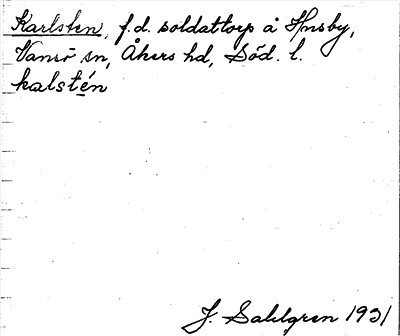 Karlsten, f.d. soldattorp å Husby,
Vansö sn, Åkers hd, Söd. l.
kalstén
J. Sahlgren 1931